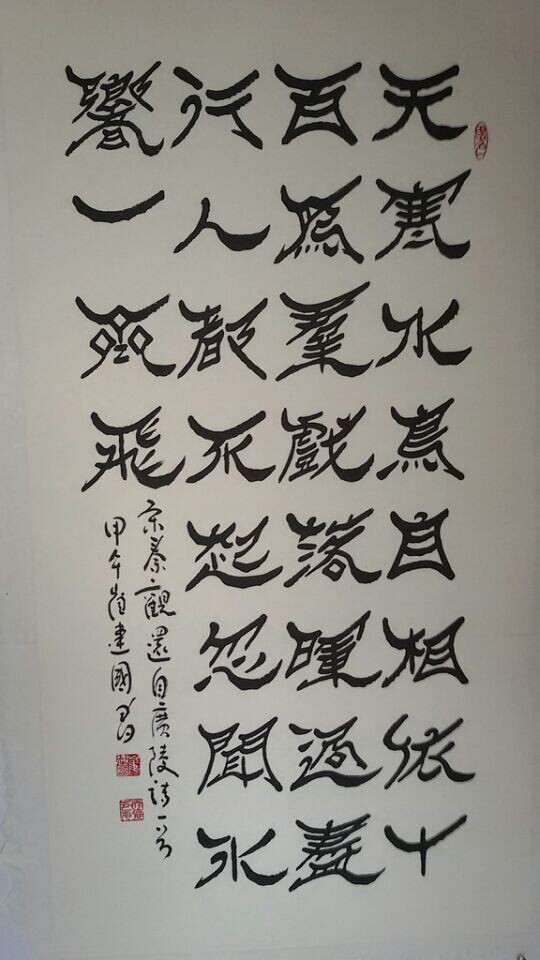 天寒水鳥自相依十
百為羣戲落暉過盡
行人都不起忽聞氷
響一齊飛
宋秦觀還自廣陵詩一首
甲午崔建國書